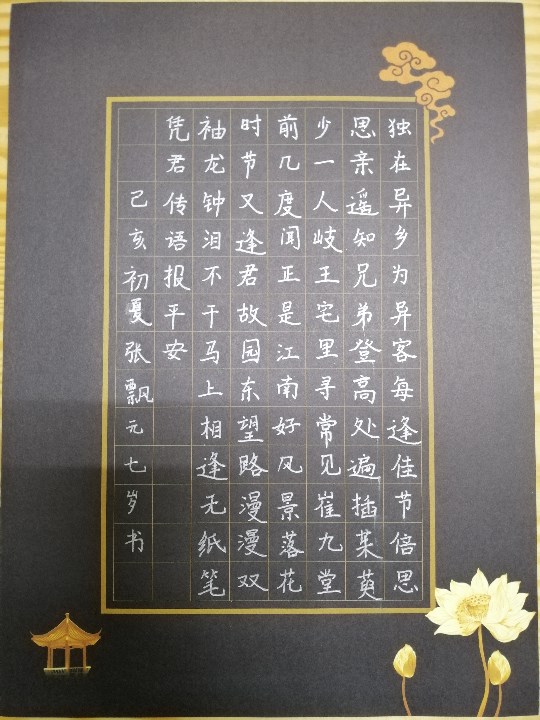 独在异乡为异客每逢佳节倍思
思亲遥知兄弟登高处遍插茱萸
少一人岐王宅里寻常见崔九堂
前几度闻正是江南好风景落花
时节又逢君故园东望路漫漫双
袖龙钟泪不干马上相逢无纸笔
凭君传语报平安
己亥初夏张飘元七岁书